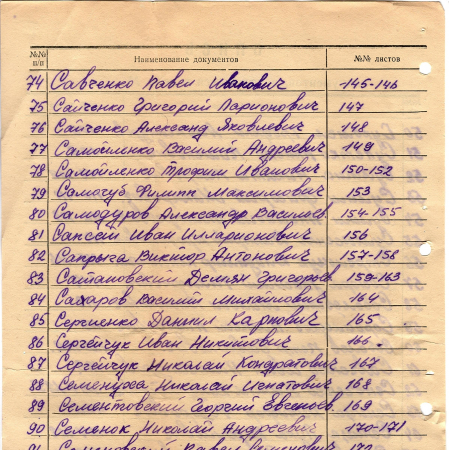 №№ п/п Наименование документов №№ листов
74 Савченко Павел Иванович 145-146
75 Сайченко Григорий Ларионович 147
76 Сайченко Александ Яковлевич 148
77 Самойленко Василий Андреевич 149
78 Самойленко Трофим Иванович 150-152
79 Самогуб Филипп Максимович 153
80 Самодуров Александр Васильев. 154-155
81 Сапсай Иван Илларионович 156
82 Сапрыга Виктор Антонович 157-158
83 Сатановский Демьян Григорьев. 159-163
84 Сахаров Василий Михайлович 164
85 Сергиенко Даниил Карпович 165
86 Сергейчук Иван Никитович 166
87 Сергейчук Николай Кондратович 167
88 Николай Игнатович 168
89 Сементовский Георгий Евгеньев. 169
90 Семенюк Николай Андреевич 170-171
91 Павел Семенович